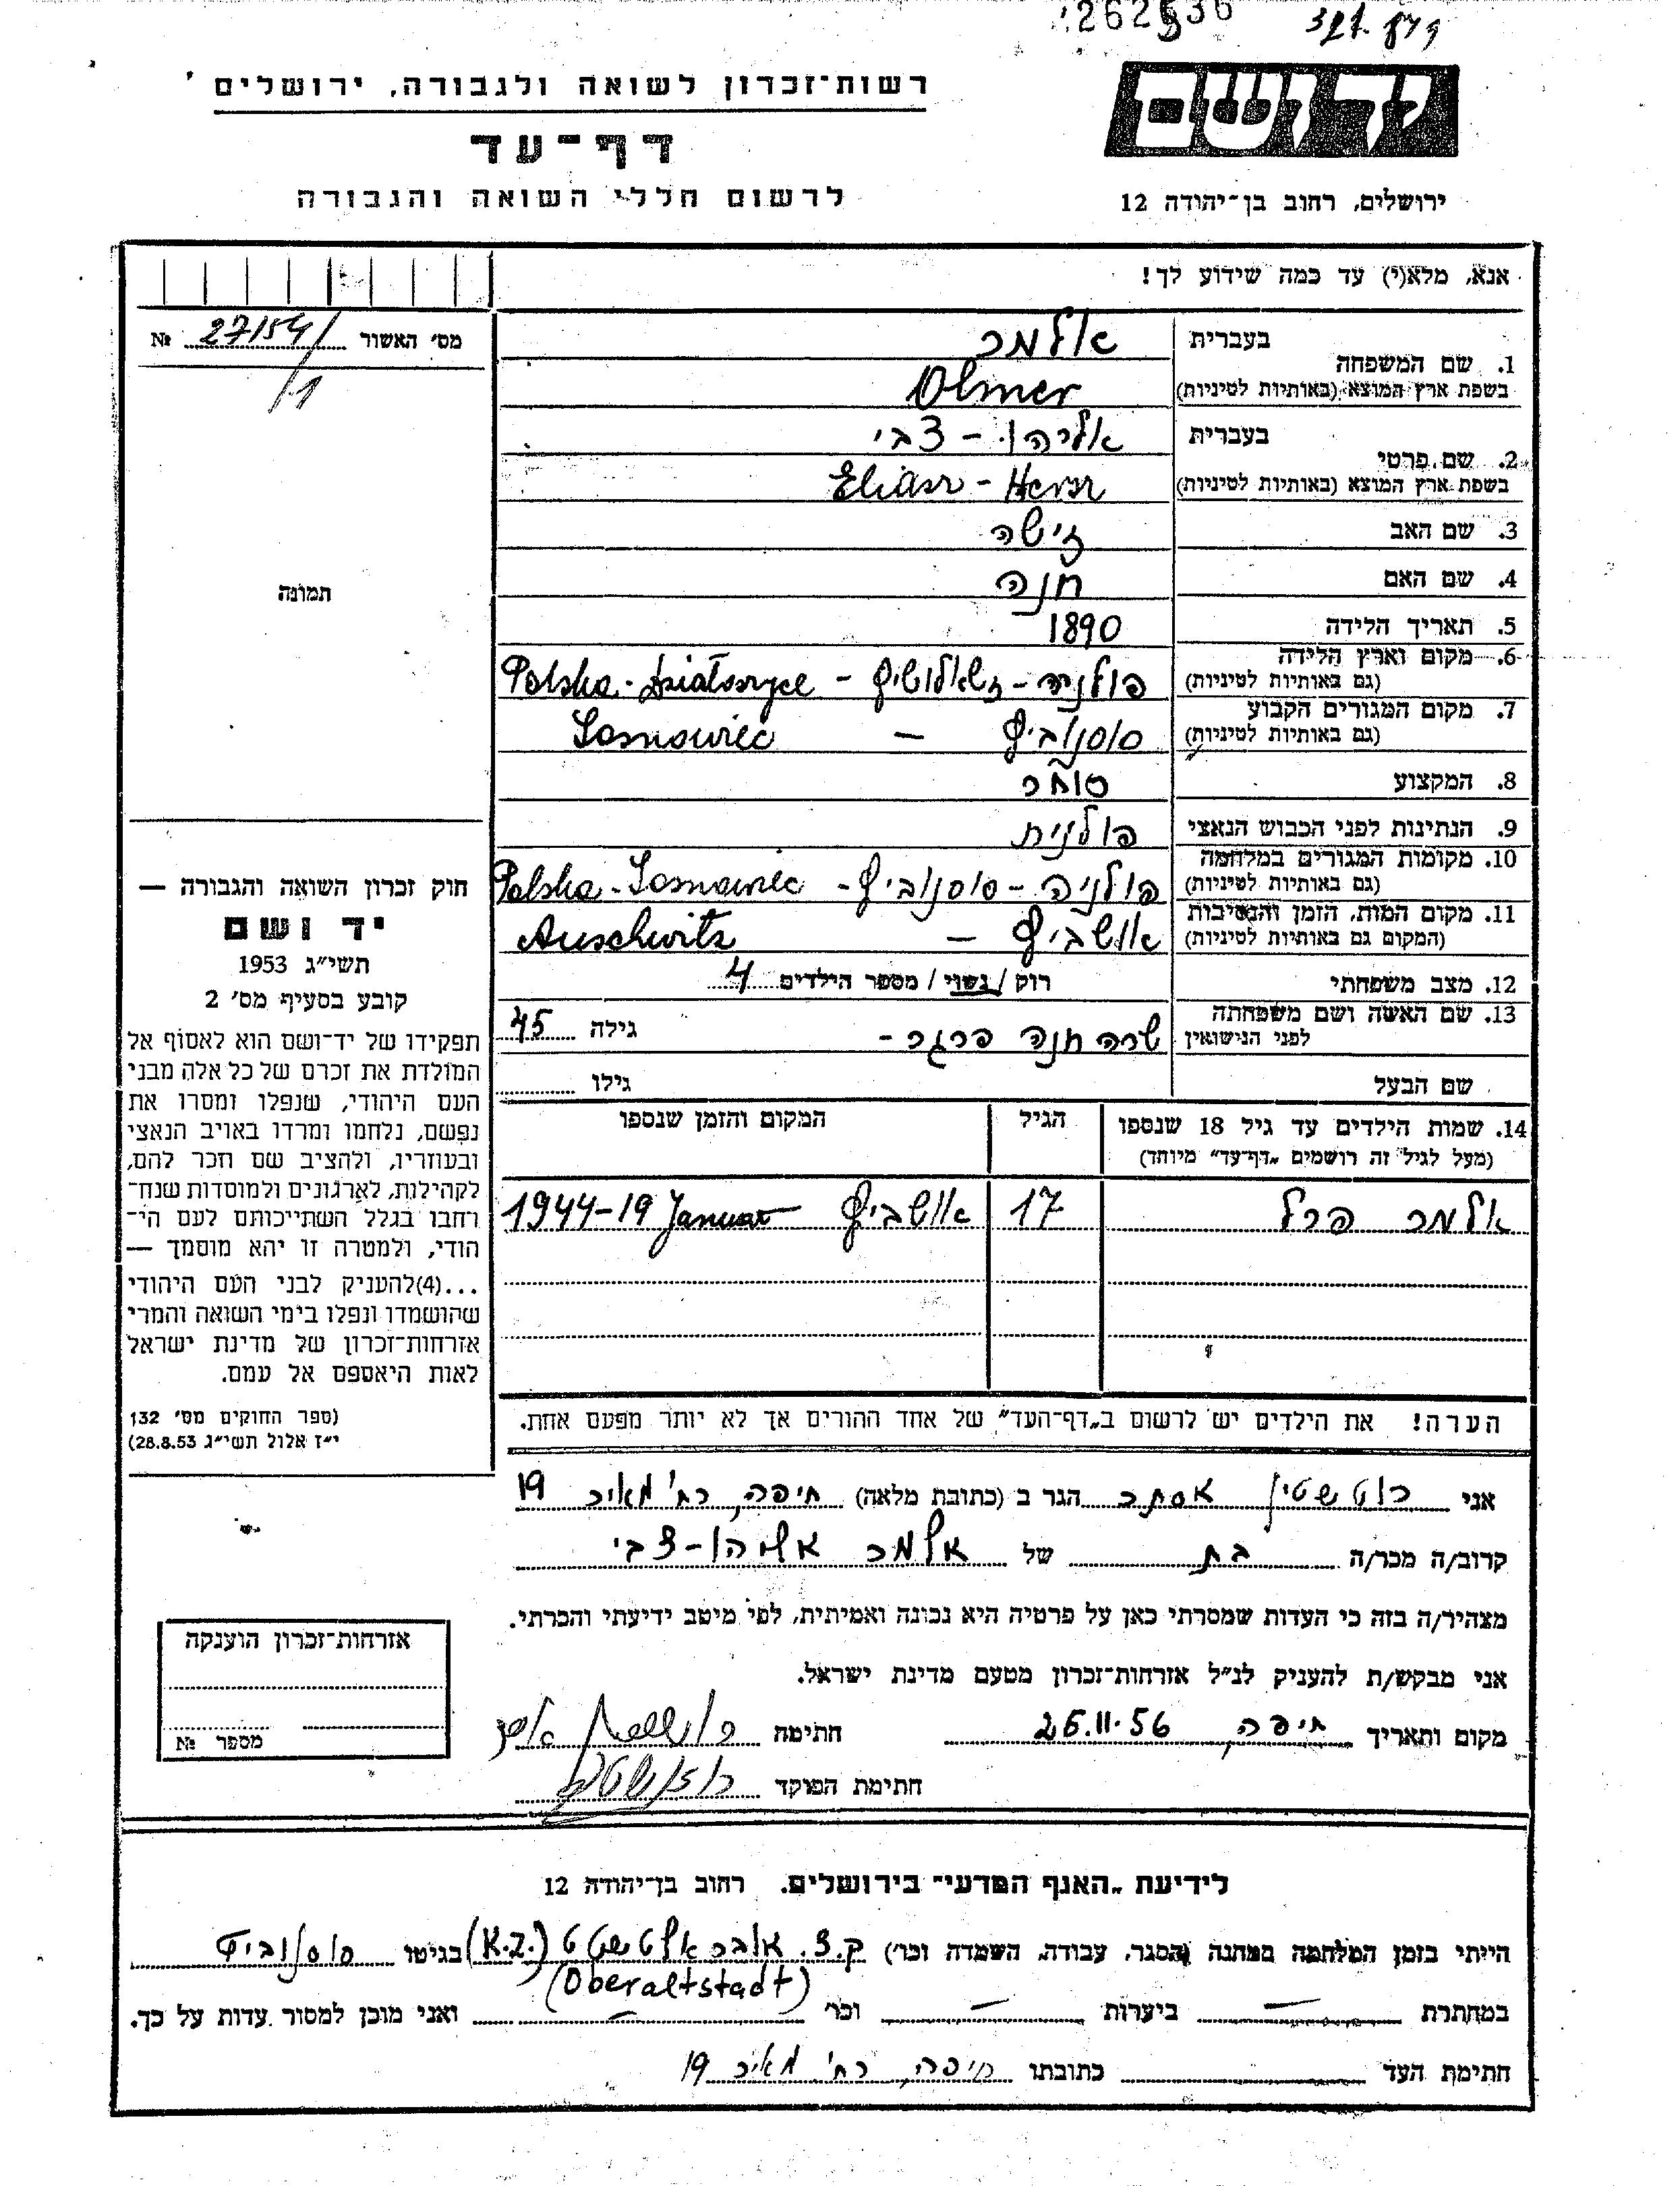 262536
רשות־זכרון לשואה ולגבורה, ירושלים
יד ושם
דף־עד
לרשום חללי השואה והגבורה
ירושלים, רחוב בן־יהודה 12
אנא, מלא(י) עד כמה שידוע לך!
מס' האשור 27154/ №
/1
תמונה
חוק זכרון השואה והגבורה —
יד ושם
תשי״ג 1953
קובע בסעיף מס' 2
תפקידו של יד־ושם הוא לאסוף אל
המולדת את זכרם של כל אלה מבני
העם היהודי, שנפלו ומסרו את
נפשם, נלחמו ומרדו באויב הנאצי
ובעוזריו, ולהציב שם וזכר להם,
לקהילות, לארגונים ולמוסדות שנח־
רחבו בגלל השתייכותם לעם הי־
הודי, ולמטרה זו יהא מוסמך —
...(4)להעניק לבני העם היהודי
שהושמדו ונפלו בימי השואה והמרי
אזרחות־זכרון של מדינת ישראל
לאות היאספם אל עמם.
(ספר החוקים מס' 132
י״ז אלול תשי״ג 28.8.53)
1. שם המשפחה
בעברית אולמר
בשפת ארץ המוצא (באותיות לטיניות) Olmer
2. שם פרטי
בעברית אליהו - צבי
בשפת ארץ המוצא (באותיות לטיניות) Eliasz - Hersz
3. שם האב זישה
4. שם האם חנה
5. תאריך הלידה 1890
6. מקום וארץ הלידה
(גם באותיות לטיניות) פולניה - זשאלושיץ - Polska - Działoszyce
7. מקום המגורים הקבוע
(גם באותיות לטיניות) סוסנוביץ — Sosnowiec
8. המקצוע סוחר
9. הנתינות לפני הכבוש הנאצי פולנית
10. מקומות המגורים במלחמה
(גם באותיות לטיניות) פולניה - סוסנוביץ - Polska - Sosnowiec
11. מקום המות, הזמן והנסיבות
(המקום גם באותיות לטיניות) אושביץ — Auschwitz
12. מצב משפחתי רוק / נשוי / מספר הילדים 4
13. שם האשה ושם משפחתה
לפני הנישואין שרה חנה פרגר - גילה 45
שם הבעל גילו
14. שמות הילדים עד גיל 18 שנספו
(מעל לגיל זה רושמים „דף־עד״ מיוחד)
הגיל
המקום והזמן שנספו
אולמר פרל 17 אושביץ 1944-19 Januar
הערה! את הילדים יש לרשום ב„דף־העד״ של אחד ההורים אך לא יותר מפעם אחת.
אני רוטשטין אסתר הגר ב (כתובת מלאה) חיפה, רח' מאיר 19
קרוב/ה מכר/ה בת של אולמר אליהו-צבי
מצהיר/ה בזה כי העדות שמסרתי כאן על פרטיה היא נכונה ואמיתית, לפי מיטב ידיעתי והכרתי.
אני מבקש/ת להעניק לנ״ל אזרחות־זכרון מטעם מדינת ישראל.
מקום ותאריך חיפה, 25.11.56 חתימה
חתימת הפוקד
אזרחות־זכרון הוענקה
מספר №
לידיעת „האגף המדעי״ בירושלים, רחוב בן־יהודה 12
הייתי בזמן המלחמה במחנה (הסגר, עבודה, השמדה וכר') ק.צ. אובראלטשטט (K.Z.) בגיטו סוסנוביץ
(Oberaltstadt)
במחתרת — ביערות — וכר' — ואני מוכן למסור עדות על כך.
חתימת העד כתובתו חיפה, רח' מאיר 19